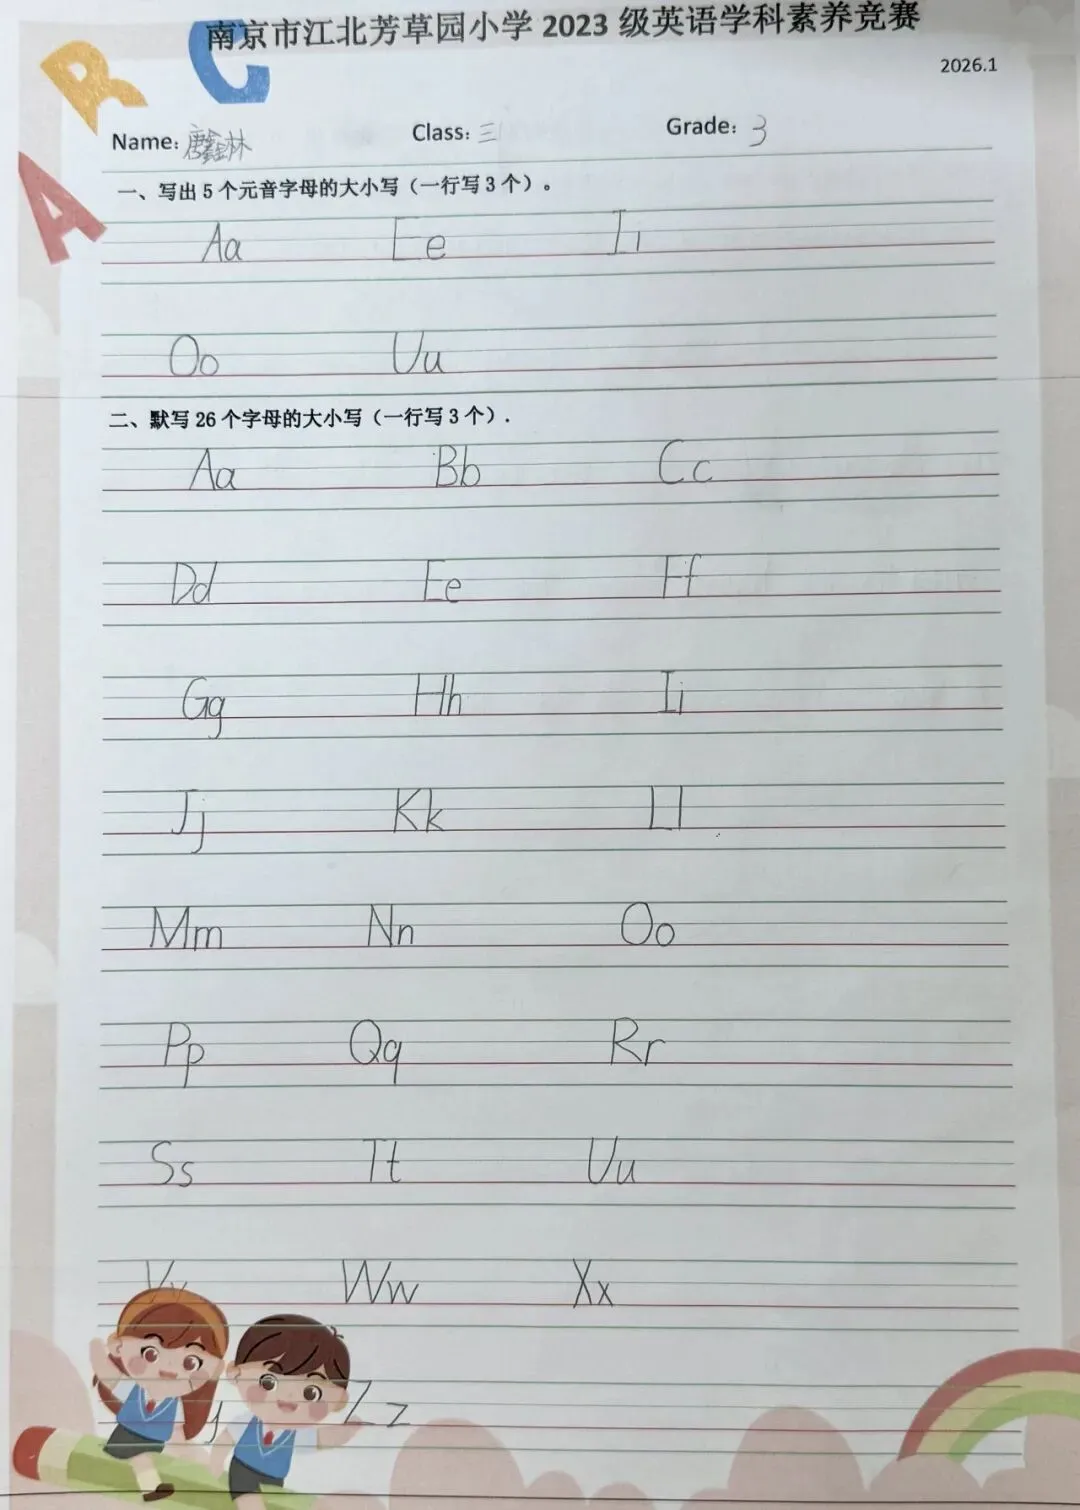 A B C
南京市江北芳草园小学 2023 级英语学科素养竞赛
2026.1
Name: 唐鑫林 Class: 三1 Grade: 3
一、写出 5 个元音字母的大小写（一行写 3 个）。
Aa Ee Ii
Oo Uu
二、默写 26 个字母的大小写（一行写 3 个）.
Aa Bb Cc
Dd Ee Ff
Gg Hh Ii
Jj Kk Ll
Mm Nn Oo
Pp Qq Rr
Ss Tt Uu
Vv Ww Xx
y Zz